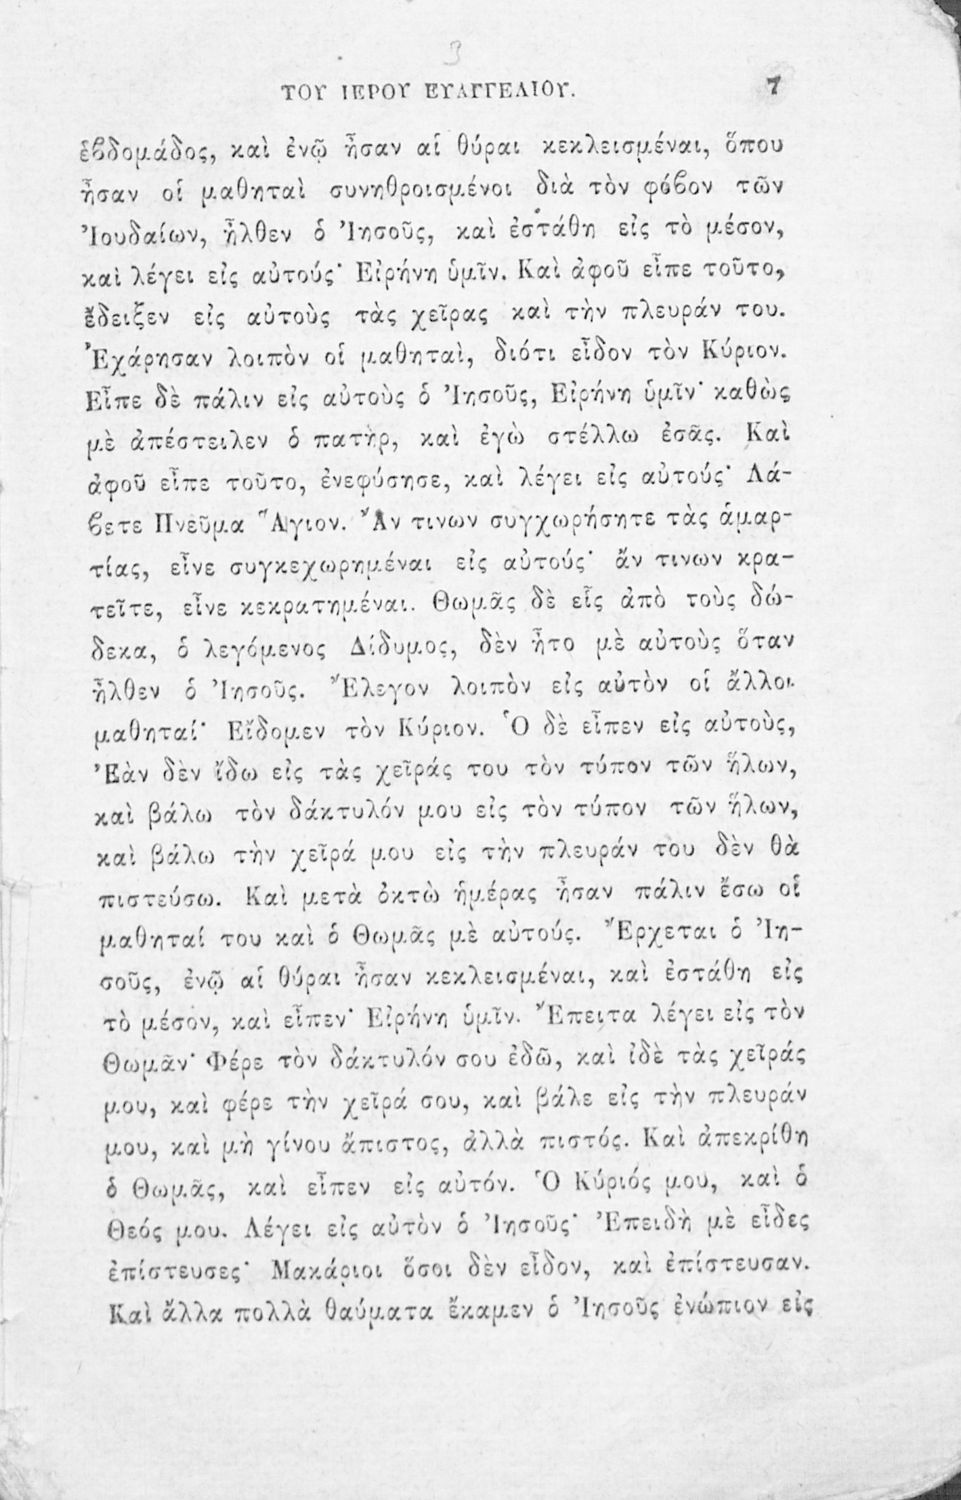 3
ΤΟΥ ΙΕΡΟΥ ΕΥΑΓΓΕΛΙΟΥ. 7
ἑβδομάδος, καὶ ἐνῷ ἦσαν αἱ θύραι κεκλεισμέναι, ὅπου
ἦσαν οἱ μαθηταὶ συνηθροισμένοι διὰ τὸν φόβον τῶν
Ἰουδαίων, ἦλθεν ὁ Ἰησοῦς, καὶ ἐστάθη εἰς τὸ μέσον,
καὶ λέγει εἰς αὐτούς· Εἰρήνη ὑμῖν. Καὶ ἀφοῦ εἶπε τοῦτο,
ἔδειξεν εἰς αὐτοὺς τὰς χεῖρας καὶ τὴν πλευράν του.
Ἐχάρησαν λοιπὸν οἱ μαθηταὶ, διότι εἶδον τὸν Κύριον.
Εἶπε δὲ πάλιν εἰς αὐτοὺς ὁ Ἰησοῦς, Εἰρήνη ὑμῖν· καθὼς
μὲ ἀπέστειλεν ὁ πατὴρ, καὶ ἐγὼ στέλλω ἐσᾶς. Καὶ
ἀφοῦ εἶπε τοῦτο, ἐνεφύσησε, καὶ λέγει εἰς αὐτούς· Λά-
βετε Πνεῦμα Ἅγιον. Ἄν τινων συγχωρήσητε τὰς ἁμαρ-
τίας, εἶνε συγκεχωρημέναι εἰς αὐτούς· ἄν τινων κρα-
τεῖτε, εἶνε κεκρατημέναι. Θωμᾶς δὲ εἷς ἀπὸ τοὺς δώ-
δεκα, ὁ λεγόμενος Δίδυμος, δὲν ἦτο μὲ αὐτοὺς ὅταν
ἦλθεν ὁ Ἰησοῦς. Ἔλεγον λοιπὸν εἰς αὐτὸν οἱ ἄλλοι
μαθηταί· Εἴδομεν τὸν Κύριον. Ὁ δὲ εἶπεν εἰς αὐτοὺς,
Ἐὰν δὲν ἴδω εἰς τὰς χεῖράς του τὸν τύπον τῶν ἥλων,
καὶ βάλω τὸν δάκτυλόν μου εἰς τὸν τύπον τῶν ἥλων,
καὶ βάλω τὴν χεῖρά μου εἰς τὴν πλευράν του δὲν θὰ
πιστεύσω. Καὶ μετὰ ὀκτὼ ἡμέρας ἦσαν πάλιν ἔσω οἱ
μαθηταί του καὶ ὁ Θωμᾶς μὲ αὐτούς. Ἔρχεται ὁ Ἰη-
σοῦς, ἐνῷ αἱ θύραι ἦσαν κεκλεισμέναι, καὶ ἐστάθη εἰς
τὸ μέσον, καὶ εἶπεν· Εἰρήνη ὑμῖν. Ἔπειτα λέγει εἰς τὸν
Θωμᾶν· Φέρε τὸν δάκτυλόν σου ἐδῶ, καὶ ἰδὲ τὰς χεῖράς
μου, καὶ φέρε τὴν χεῖρά σου, καὶ βάλε εἰς τὴν πλευράν
μου, καὶ μὴ γίνου ἄπιστος, ἀλλὰ πιστός. Καὶ ἀπεκρίθη
ὁ Θωμᾶς, καὶ εἶπεν εἰς αὐτόν. Ὁ Κύριός μου, καὶ ὁ
Θεός μου. Λέγει εἰς αὐτὸν ὁ Ἰησοῦς· Ἐπειδὴ μὲ εἶδες
ἐπίστευσες· Μακάριοι ὅσοι δὲν εἶδον, καὶ ἐπίστευσαν.
Καὶ ἄλλα πολλὰ θαύματα ἔκαμεν ὁ Ἰησοῦς ἐνώπιον εἰς